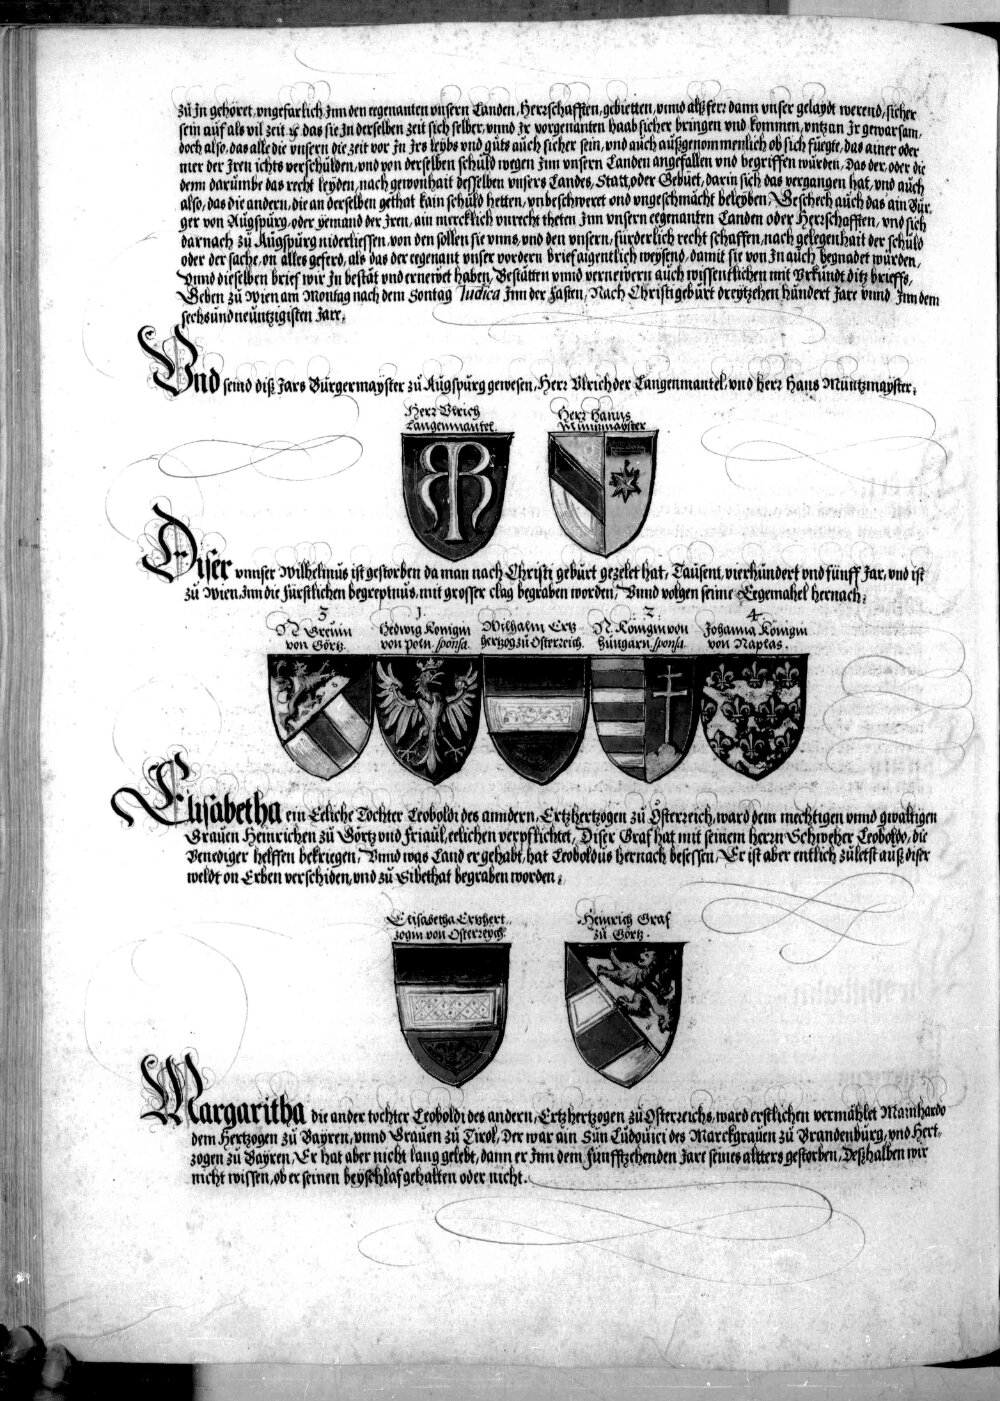 zů Jn gehöret, vngefarlich Jnn den eegenanten vnsern Landen, Herrschafften, gebietten, vnnd alß ferr dann vnser gelaydt werend, sicher
sein auf als vil zeit das sie Jn derselben zeit sich selber, vnnd Jr vorgenanten haab sicher bringen vnd kommen, vntz an Jr gewarsam,
doch also, das alle die vnsern die zeit vor Jn Jrs leybs vnd gůts auch sicher sein, vnd auch außgenommenlich ob sich fuegte, das ainer oder
mer der Jren ichts verschulden, vnd von derselben schuld wegen Jnn vnsern Landen angefallen vnd begriffen wurden, Das der, oder die
denn darumbe das recht leyden, nach gewonhait desselben vnsers Landes, Statt, oder Gebüet, darin sich das vergangen hat, vnd auch
also, das die andern, die an derselben gethat kain schuld hetten, vnbeschweret vnd vngeschmächt beleyben, Geschech auch das ain Bur,
ger von Augspurg, oder yemand der Jren, ain mercklich vnrecht theten Jnn vnsern eegenanten Landen oder Herrschafften, vnd sich
darnach zů Augspurg niderliessen, von den sollen sie vnns, vnd den vnsern, fürderlich recht schaffen, nach gelegenhait der schuld
oder der sache, on alles geferd, als das der eegenant vnser vordern brief aigentlich weysend, damit sie von Jn auch begnadet wurden,
Vnnd dieselben brief wir Jn bestät vnd ernewet haben, Bestätten vnnd vernewern auch wissentlichen mit Vrkundt ditz brieffs,
Geben zů Wien am Montag nach dem Sontag Judica Jnn der Fasten, Nach Christi geburt dreytzehen hundert Jare vnnd Jnn dem
sechsundneuntzigisten Jare.
Vnd seind diß Jars Burgermayster zů Augspurg gewesen, Herr Vlrich der Langenmantel, vnd herr Hans Müntzmayster.
Herr Vlrich
Langenmantel.
Herr Hanns
Müntzmayster
Diser vnnser Wilhelmus ist gestorben da man nach Christi geburt gezelet hat, Tausent, vierhundert vnd fünff Jar, vnd ist
zů Wien, Jnn die fürstlichen begreptnus, mit grosser clag begraben worden, Vnnd volgen seine Eegemahel hernach.
3 1. 2. 4.
N. Grevin
von Görtz.
Hedwig Königin
von Poln. sponsa.
Wilhalm Ertz
hertzog zů Osterreich.
N. Königin von
Hungarn. sponsa.
Johanna Königin
von Naplas.
Elisabetha ein Eeliche Tochter Leoboldi des anndern, Ertzhertzogen zů Österreich, ward dem mechtigen vnnd gwaltigen
Grauen Heinrichen zů Görtz vnd Friaul, eelichen verpflichtet, Diser Graf hat mit seinem herrn Schweher Leoboldo, die
Venediger helffen bekriegen, Vnnd was Land er gehabt, hat Leoboldus hernach besessen, Er ist aber entlich zuletst auß diser
weldt on Erben verschiden, vnd zů Sibethat begraben worden.
Elisabetha Ertzhert,
zogin von Osterreych.
Heinrich Graf
zů Görtz.
Margaritha die ander tochter Leoboldi des andern, Ertzhertzogen zů Osterreichs, ward erstlichen vermählet Mainhardo
dem Hertzogen zů Bayren, vnnd Grauen zů Tirol, Der war ain Sun Ludouici des Marckgrauen zů Brandenburg, vnd Hert,
zogen zů Bayren, Er hat aber nicht lang gelebt, dann er Jnn dem fünfftzehenden Jare seines altters gestorben, Deßhalben wir
nicht wissen, ob er seinen beyschlaf gehalten oder nicht.